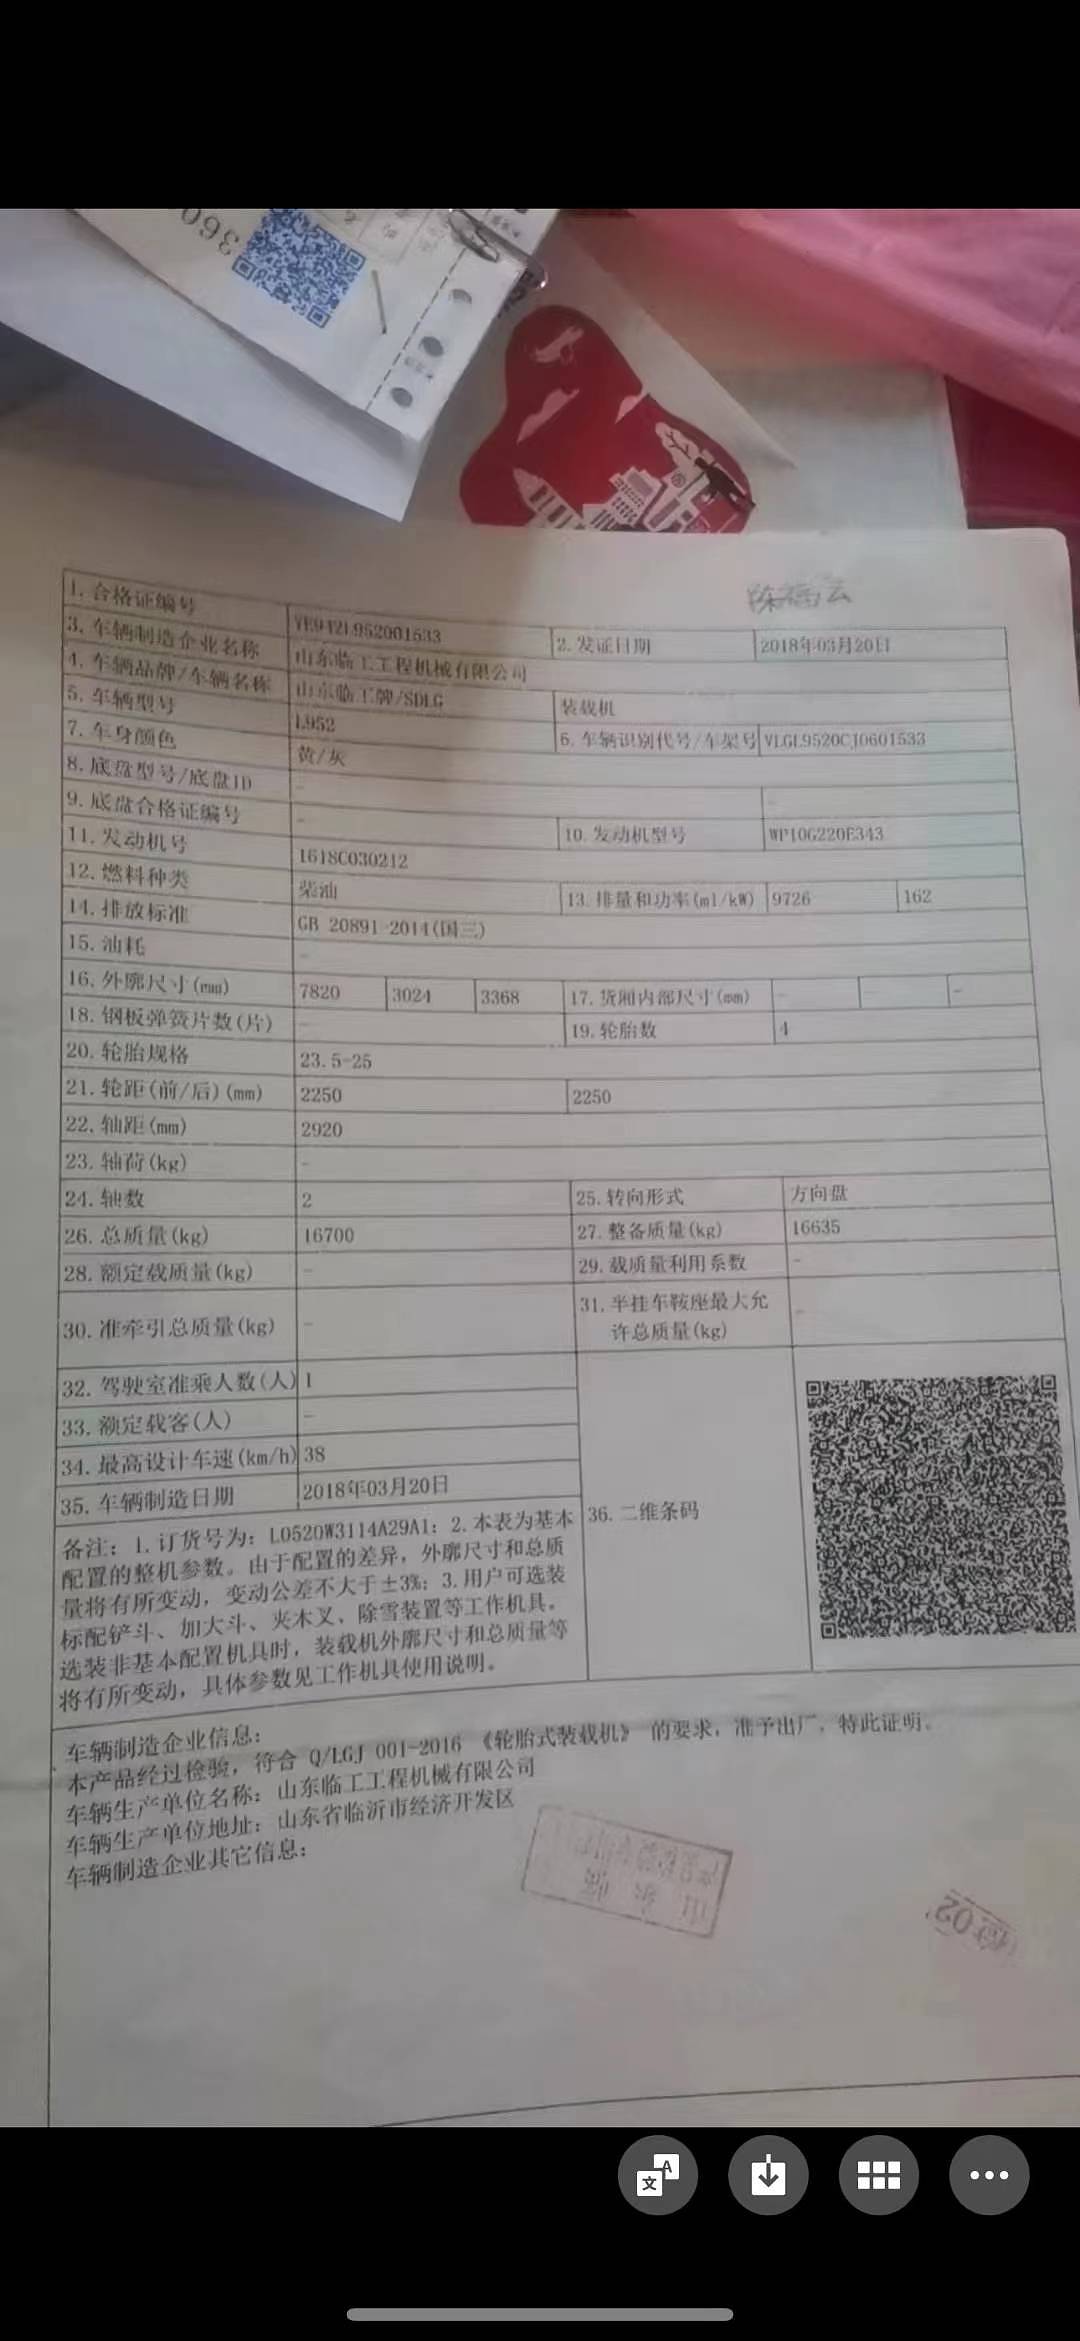 360
陈福云
1. 合格证编号 YE942L952001533 2. 发证日期 2018年03月20日
3. 车辆制造企业名称 山东临工工程机械有限公司
4. 车辆品牌/车辆名称 山东临工牌/SDLG 装载机
5. 车辆型号 L952 6. 车辆识别代号/车架号 VLGL9520CJ0601533
7. 车身颜色 黄/灰
8. 底盘型号/底盘ID - -
9. 底盘合格证编号 - 10. 发动机型号 WP10G220E343
11. 发动机号 1618C030212
12. 燃料种类 柴油 13. 排量和功率(ml/kW) 9726 162
14. 排放标准 GB 20891-2014(国三)
15. 油耗 -
16. 外廓尺寸(mm) 7820 3024 3368 17. 货厢内部尺寸(mm) - - -
18. 钢板弹簧片数(片) - 19. 轮胎数 4
20. 轮胎规格 23.5-25
21. 轮距(前/后)(mm) 2250 2250
22. 轴距(mm) 2920
23. 轴荷(kg) -
24. 轴数 2 25. 转向形式 方向盘
26. 总质量(kg) 16700 27. 整备质量(kg) 16635
28. 额定载质量(kg) - 29. 载质量利用系数 -
30. 准牵引总质量(kg) - 31. 半挂车鞍座最大允
许总质量(kg) -
32. 驾驶室准乘人数(人) 1
33. 额定载客(人) -
34. 最高设计车速(km/h) 38
35. 车辆制造日期 2018年03月20日
36. 二维条码
备注: 1. 订货号为: L0520W3114A29A1; 2. 本表为基本
配置的整机参数。由于配置的差异, 外廓尺寸和总质
量将有所变动, 变动公差不大于±3%; 3. 用户可选装
标配铲斗、加大斗、夹木叉、除雪装置等工作机具。
选装非基本配置机具时, 装载机外廓尺寸和总质量等
将有所变动, 具体参数见工作机具使用说明。
车辆制造企业信息:
本产品经过检验, 符合 Q/LGJ 001-2016 《轮胎式装载机》 的要求, 准予出厂, 特此证明。
车辆生产单位名称: 山东临工工程机械有限公司
车辆生产单位地址: 山东省临沂市经济开发区
车辆制造企业其它信息:
山东临
检02